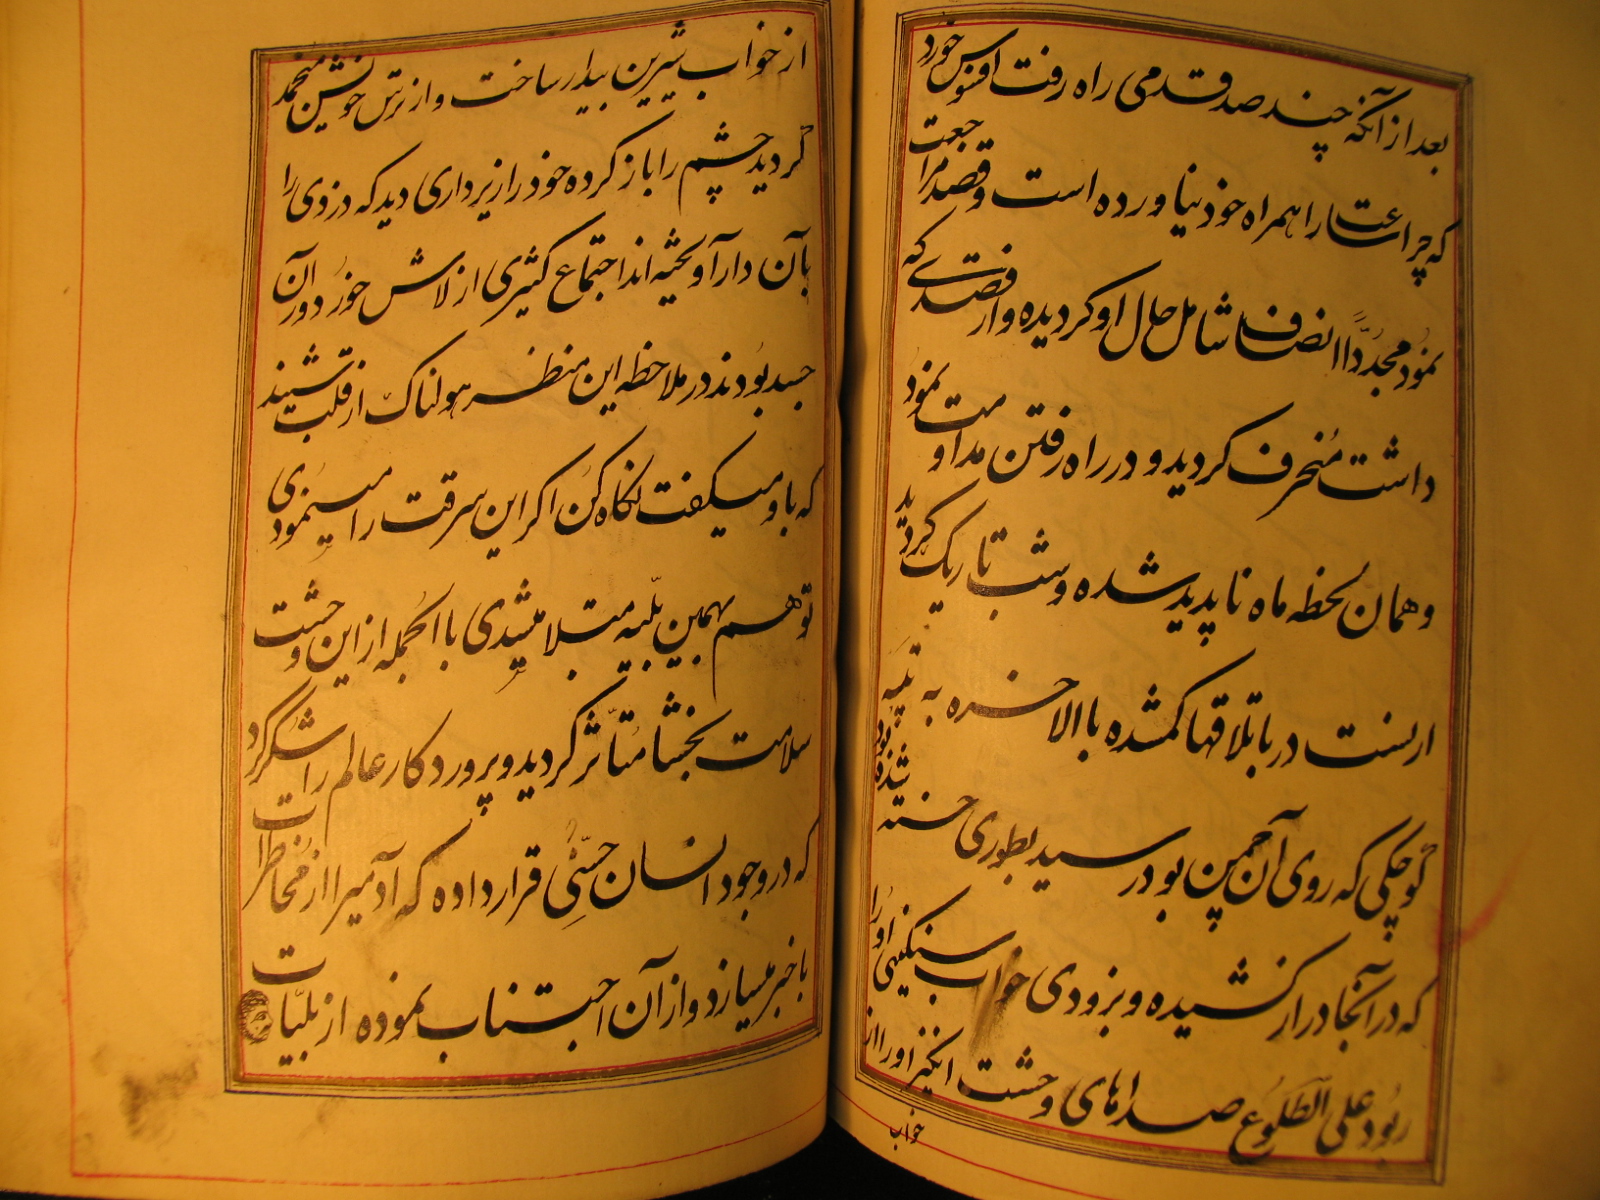 بعد از آنکه چند صد قدمی راه رفت افسوس خورد
که چرا ساعت را همراه خود نیاورده است و قصد مراجعت
نمود مجدداً انصاف شامل حال او گردیده و از قصدی که
داشت منحرف گردید و در راه رفتن مداومت نمود
و همان لحظه ماه ناپدید شده و شب تاریک گردید
ارنست در باتلاقها گمشده باالاخره به تپه
کوچکی که روی آن چمن بود رسید بطوری خسته شده بود
که در آنجا دراز کشیده و بزودی خواب سنگینی او را
ربود علی الطلوع صداهای وحشت انگیز او را از
خواب
از خواب شیرین بیدار ساخت و از ترس خونش منجمد
گردید چشم را باز کرده خود را زیر داری دید که دزدی را
بآن دار آویخته اند اجتماع کثیری از لاش خور دور آن
جسد بودند در ملاحظه این منظر هولناک از قلب شنید
که باو میگفت نگاه کن اگر این سرقت را مینمودی
تو هم بهمین بلیه مبتلا میشدی باالجمله از این وحشت
سلامت بخشا متأثر گردید و پروردگار عالم را شکر کرد
که در وجود انسان حسّی قرار داده که آدمیرا از مخاطرات
با خبر میسازد و از آن اجتناب نموده از بلیّات